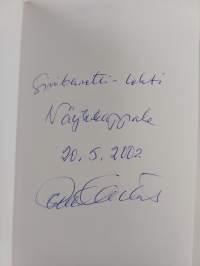 Sinibaretti - lehti
Näytekappale
20.5.2002